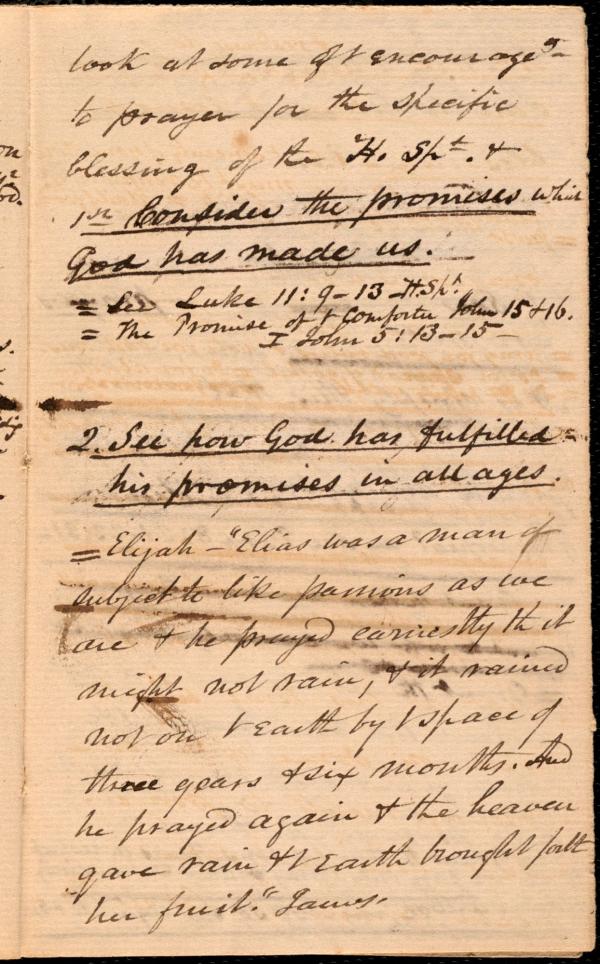 look at some of t encourage^g =
to prayer for the specific
blessing of the H. Sp^t. &
1st Consider the promises which
God has made us.
= See Luke 11: 9-13 - H. Sp^t.
= The Promise of t Comforter John 15 & 16.
I John 5: 13-15 -
2. See how God has fulfilled =
his promises in all ages.
= Elijah - "Elias was a man of
subject to like passions as we
are & he prayed earnestly th it
might not rain, & it rained
not on t Earth by t space of
three years & six months. And
he prayed again & the heaven
gave rain & t Earth brought forth
her fruit." James.